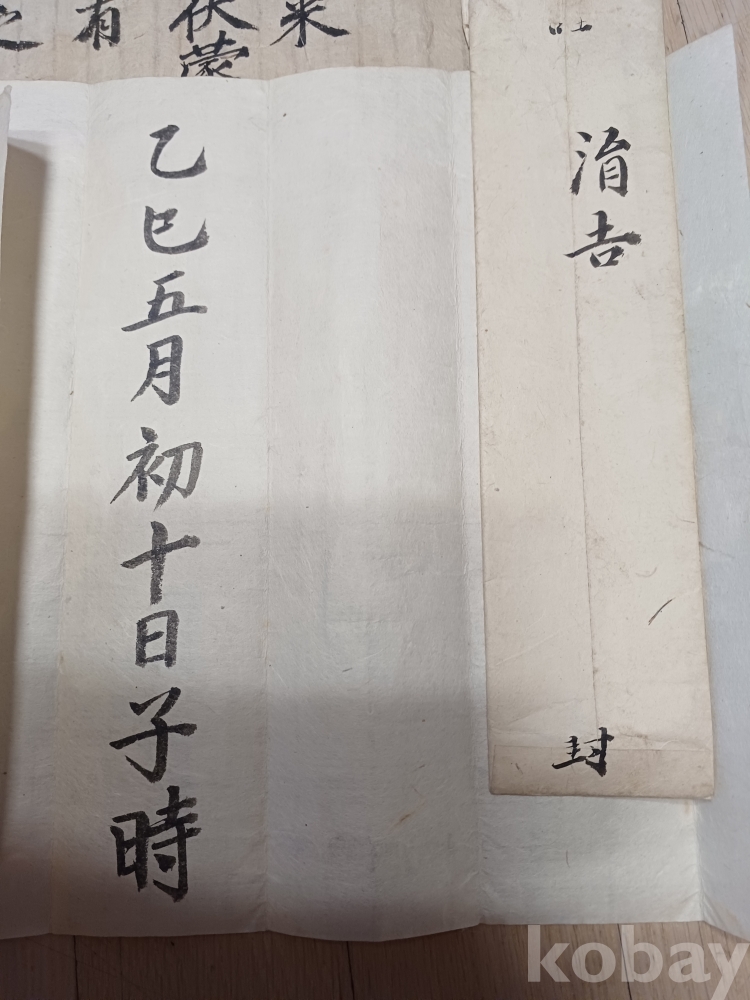 涓吉
封
伏蒙
有
之
乙巳五月初十日子時
kobay